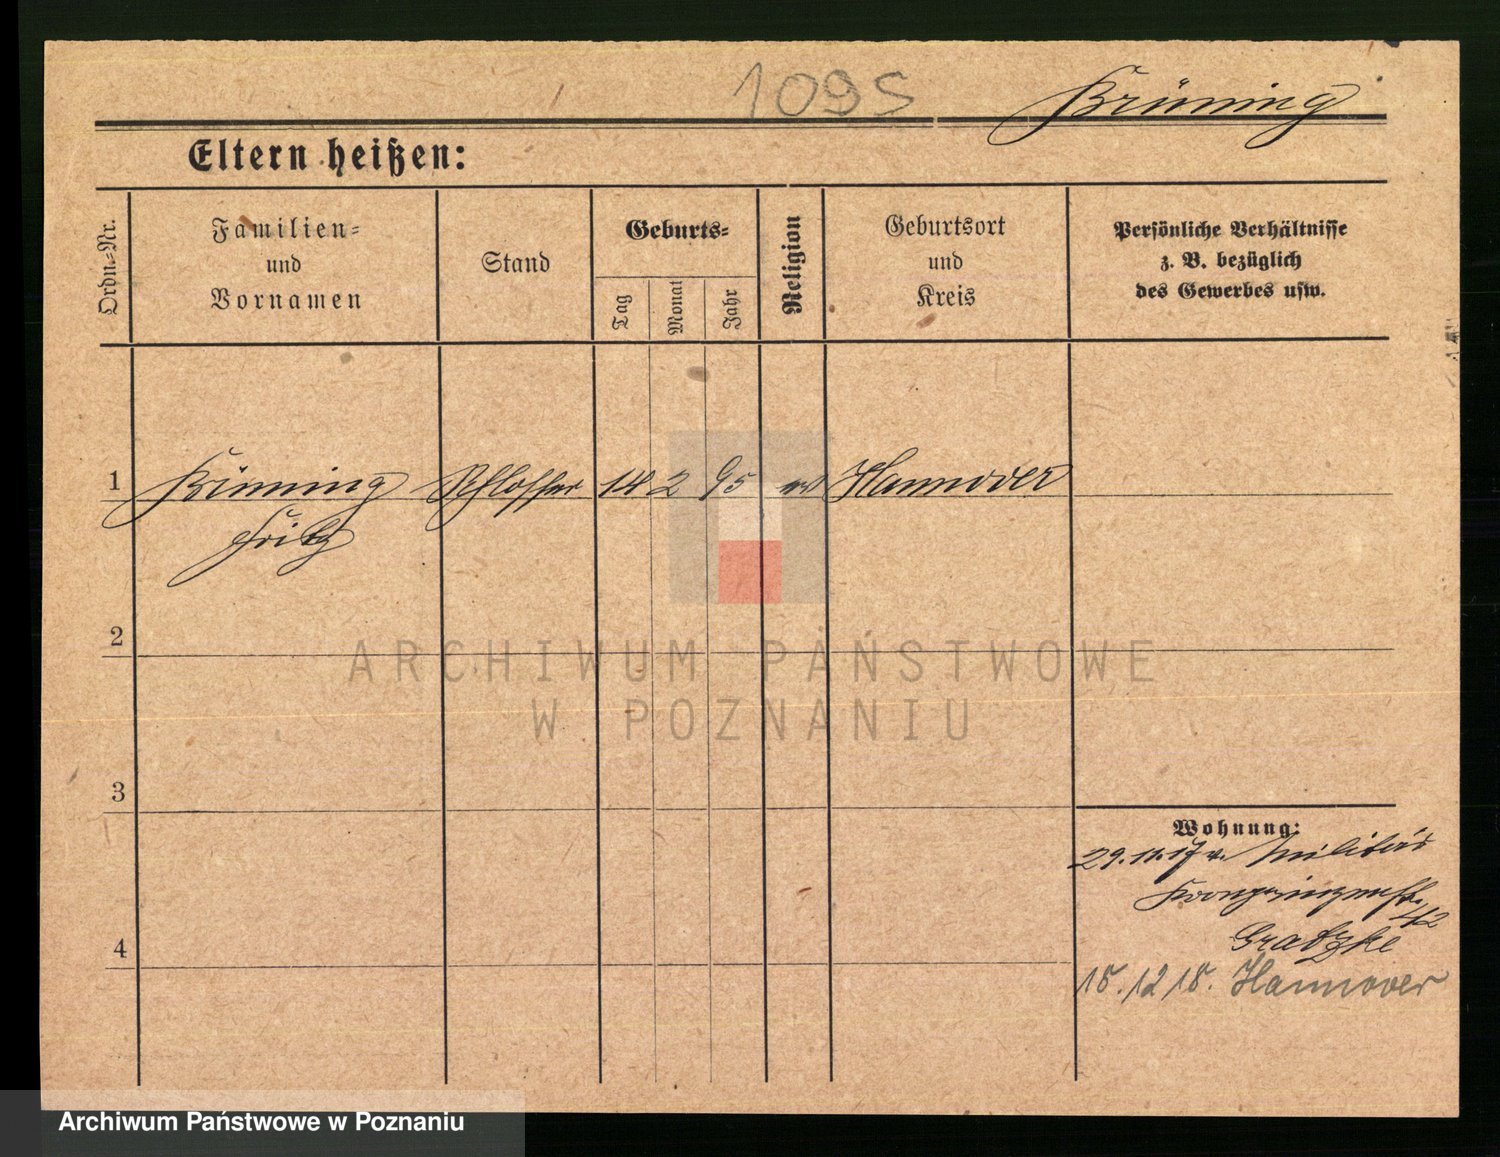 1095
Brüning
Eltern heißen:
Ordn.-Nr.
Familien- und Vornamen
Stand
Geburts-
Tag
Monat
Jahr
Religion
Geburtsort und Kreis
Persönliche Verhältnisse
z. B. bezüglich
des Gewerbes usw.
1 Brüning Schlosser 14 2 95 ev Hannover
Fritz
2
ARCHIWUM PAŃSTWOWE
W POZNANIU
3
Wohnung:
29.11.17 v. Militär
Kronprinzenstr. 42
Gratzke
15.12 18. Hannover
4
Archiwum Państwowe w Poznaniu